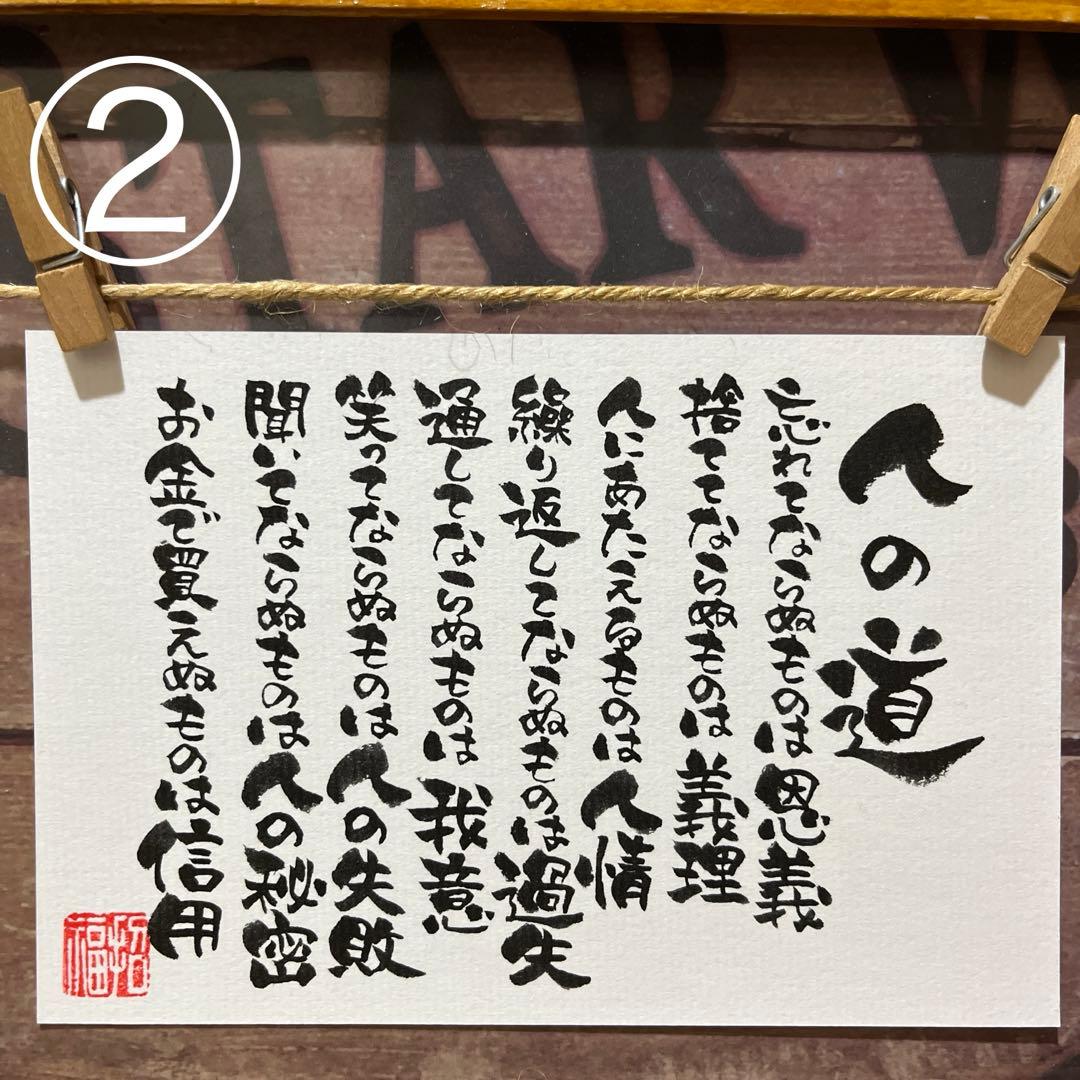 ②
TAR W
人の道
忘れてならぬものは恩義
捨ててならぬものは義理
人にあたえるものは人情
繰り返してならぬものは過失
通してならぬものは我意
笑ってならぬものは人の失敗
聞いてならぬものは人の秘密
お金で買えぬものは信用
招福